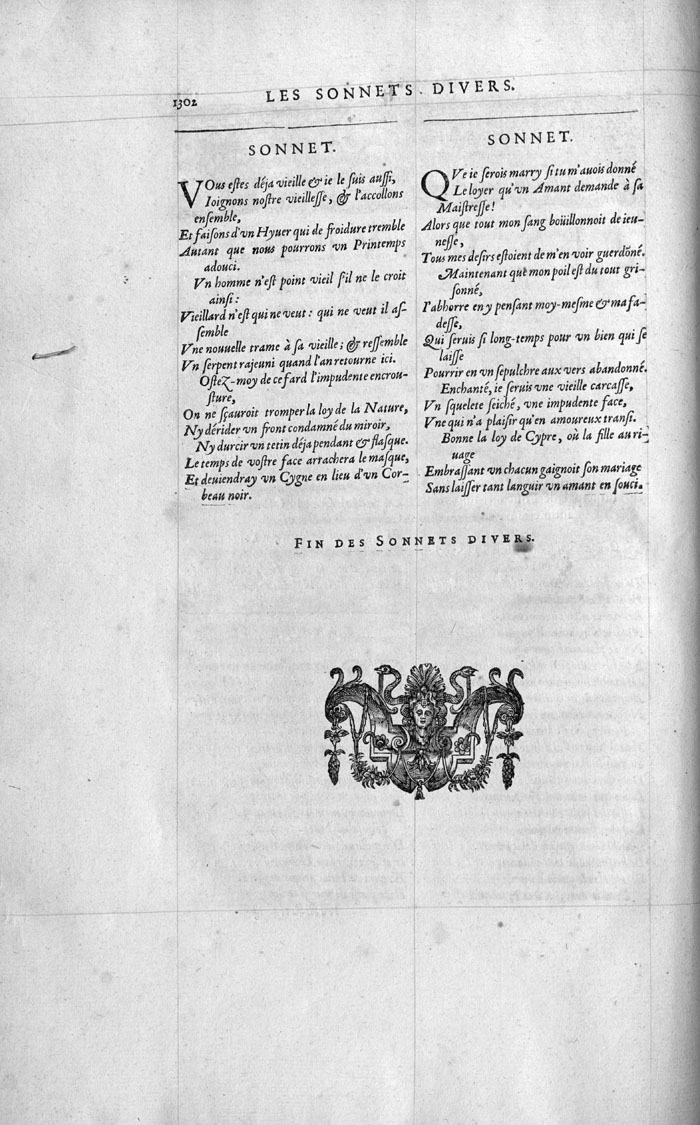 1302
LES SONNETS DIVERS.
SONNET.
VOus estes déja vieille & ie le suis aussi,
Ioignons nostre vieillesse, & l'accollons
ensemble,
Et faisons d'vn Hyuer qui de froidure tremble
Autant que nous pourrons vn Printemps
adouci.
Vn homme n'est point vieil s'il ne le croit
ainsi:
Vieillard n'est qui ne veut: qui ne veut il as-
semble
Vne nouuelle trame à sa vieille; & ressemble
Vn serpent rajeuni quand l'an retourne ici.
Ostez-moy de ce fard l'impudente encrou-
sture,
On ne sçauroit tromper la loy de la Nature,
Ny dérider vn front condamné du miroir,
Ny durcir vn tetin déja pendant & flasque.
Le temps de vostre face arrachera le masque,
Et deuiendray vn Cygne en lieu d'vn Cor-
beau noir.
SONNET.
QVe ie serois marry si tu m'auois donné
Le loyer qu'vn Amant demande à sa
Maistresse!
Alors que tout mon sang boüillonnoit de ieu-
nesse,
Tous mes desirs estoient de m'en voir guerdõné.
Maintenant que mon poil est du tout gri-
sonné,
I'abhorre en y pensant moy-mesme & ma fa-
desse,
Qui seruis si long-temps pour vn bien qui se
laisse
Pourrir en vn sepulchre aux vers abandonné.
Enchanté, ie seruis vne vieille carcasse,
Vn squelete seiché, vne impudente face,
Vne qui n'a plaisir qu'en amoureux transi.
Bonne la loy de Cypre, où la fille au ri-
uage
Embrassant vn chacun gaignoit son mariage
Sans laisser tant languir vn amant en souci.
FIN DES SONNETS DIVERS.